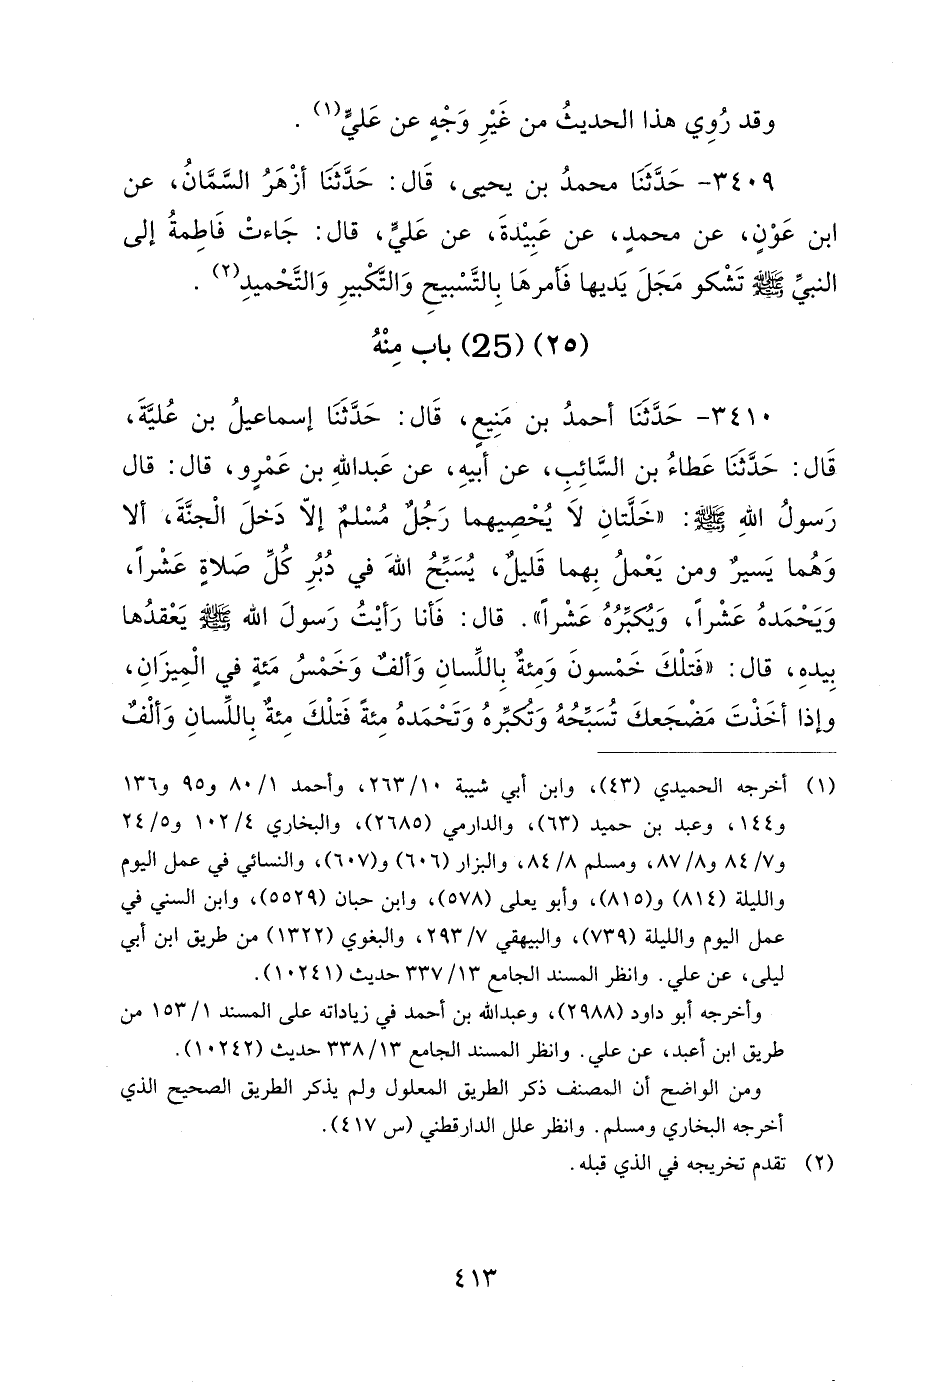 وقد رُوِي هذا الحديثُ من غَيْرِ وَجْهٍ عن عَليٍّ(١) .
٣٤٠٩- حَدَّثَنَا محمدُ بن يحيى، قَال: حَدَّثَنَا أزْهَرُ السَّمَّانُ، عن
ابن عَوْنٍ، عن محمدٍ، عن عَبِيْدةَ، عن عَليٍّ، قال: جَاءتْ فَاطِمةُ إلى
النبيِّ ﷺ تَشْكو مَجَلَ يَديها فَأمرهَا بِالتَّسْبيحِ وَالتَّكْبيرِ وَالتَّحْميدِ(٢) .
(٢٥) (25) باب مِنْهُ
٣٤١٠- حَدَّثَنَا أحمدُ بن مَنِيعٍ، قَال: حَدَّثَنَا إسماعيلُ بن عُليَّةَ،
قَال: حَدَّثَنَا عَطاءُ بن السَّائِبِ، عن أبيهِ، عن عَبداللهِ بن عَمْرٍو، قال: قال
رَسولُ اللهِ ﷺ: «خَلَّتانِ لَا يُحْصِيهما رَجُلٌ مُسْلمٌ إلاّ دَخلَ الْجنَّةَ، ألا
وَهُما يَسيرٌ ومن يَعْملُ بِهما قَليلٌ، يُسَبِّحُ اللهَ في دُبُرِ كُلِّ صَلاةٍ عَشْراً،
وَيَحْمَدهُ عَشْراً، وَيُكبِّرُهُ عَشْراً». قال: فَأنا رَأيْتُ رَسولَ الله ﷺ يَعْقدُها
بِيدهِ، قال: «فَتلْكَ خَمْسونَ وَمِئةٌ بِاللِّسانِ وَألفٌ وَخَمْسُ مَئةٍ في الْمِيزَانِ،
وإذا أخَذْتَ مَضْجَعكَ تُسَبِّحُهُ وَتُكبِّرهُ وَتَحْمَدهُ مِئةً فَتلْكَ مِئةٌ بِاللِّسانِ وَألْفٌ
(١) أخرجه الحميدي (٤٣)، وابن أبي شيبة ١٠/ ٢٦٣، وأحمد ١/ ٨٠ و٩٥ و١٣٦
و١٤٤، وعبد بن حميد (٦٣)، والدارمي (٢٦٨٥)، والبخاري ٤/ ١٠٢ و٥/ ٢٤
و٧/ ٨٤ و٨/ ٨٧، ومسلم ٨/ ٨٤، والبزار (٦٠٦) و(٦٠٧)، والنسائي في عمل اليوم
والليلة (٨١٤) و(٨١٥)، وأبو يعلى (٥٧٨)، وابن حبان (٥٥٢٩)، وابن السني في
عمل اليوم والليلة (٧٣٩)، والبيهقي ٧/ ٢٩٣، والبغوي (١٣٢٢) من طريق ابن أبي
ليلى، عن علي. وانظر المسند الجامع ١٣/ ٣٣٧ حديث (١٠٢٤١).
وأخرجه أبو داود (٢٩٨٨)، وعبدالله بن أحمد في زياداته على المسند ١/ ١٥٣ من
طريق ابن أعبد، عن علي. وانظر المسند الجامع ١٣/ ٣٣٨ حديث (١٠٢٤٢).
ومن الواضح أن المصنف ذكر الطريق المعلول ولم يذكر الطريق الصحيح الذي
أخرجه البخاري ومسلم. وانظر علل الدارقطني (س ٤١٧).
(٢) تقدم تخريجه في الذي قبله.
٤١٣